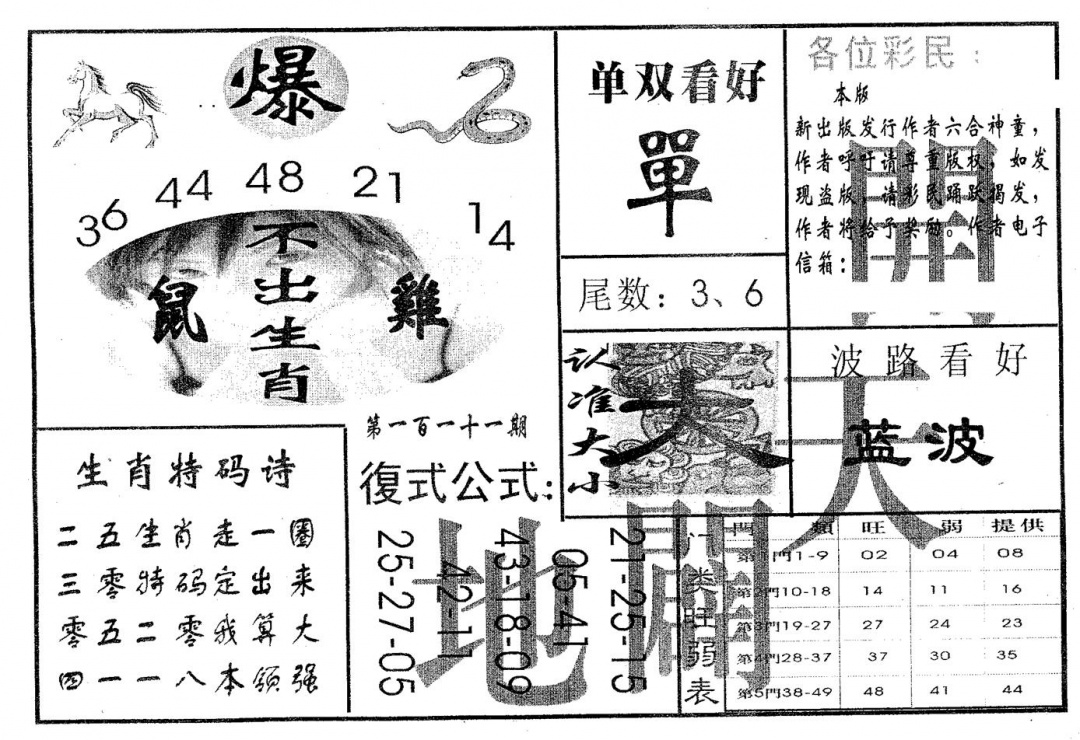 爆
36 44 48 21 14
不出生肖
鼠
雞
单双看好
單
尾数：3、6
各位彩民：
本版
新出版发行作者六合神童，
作者呼吁请尊重版权，如发
现盗版，请彩民踊跃揭发，
作者将给予奖励。作者电子
信箱：
認准大小
大
波路看好
蓝波
天
開
地
闢
第一百一十一期
復式公式：
25-27-05
42-11
43-18-09
05-41
21-25-15
生肖特码诗
二五生肖走一圈
三零特码定出来
零五二零我算大
四一一八本领强
门类旺弱表
門類 旺 弱 提供
第1門1-9 02 04 08
第2門10-18 14 11 16
第3門19-27 27 24 23
第4門28-37 37 30 35
第5門38-49 48 41 44